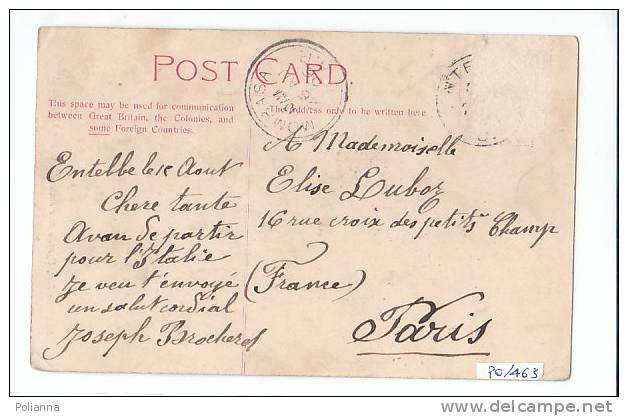 POST CARD.
This space may be used for communication
between Great Britain, the Colonies, and
some Foreign Countries.
The address only to be written here
MOMBASA
Entebbe le 1e Aout
Chere tante
Avan de partir
pour l'Italie
Je veu t'énvoyé
un salut cordial
Joseph Brocherel
A Mademoiselle
Elise Luboz
16 rue croix des petits Champ
(France)
Paris
PO/463
Polianna
www.delcampe.net